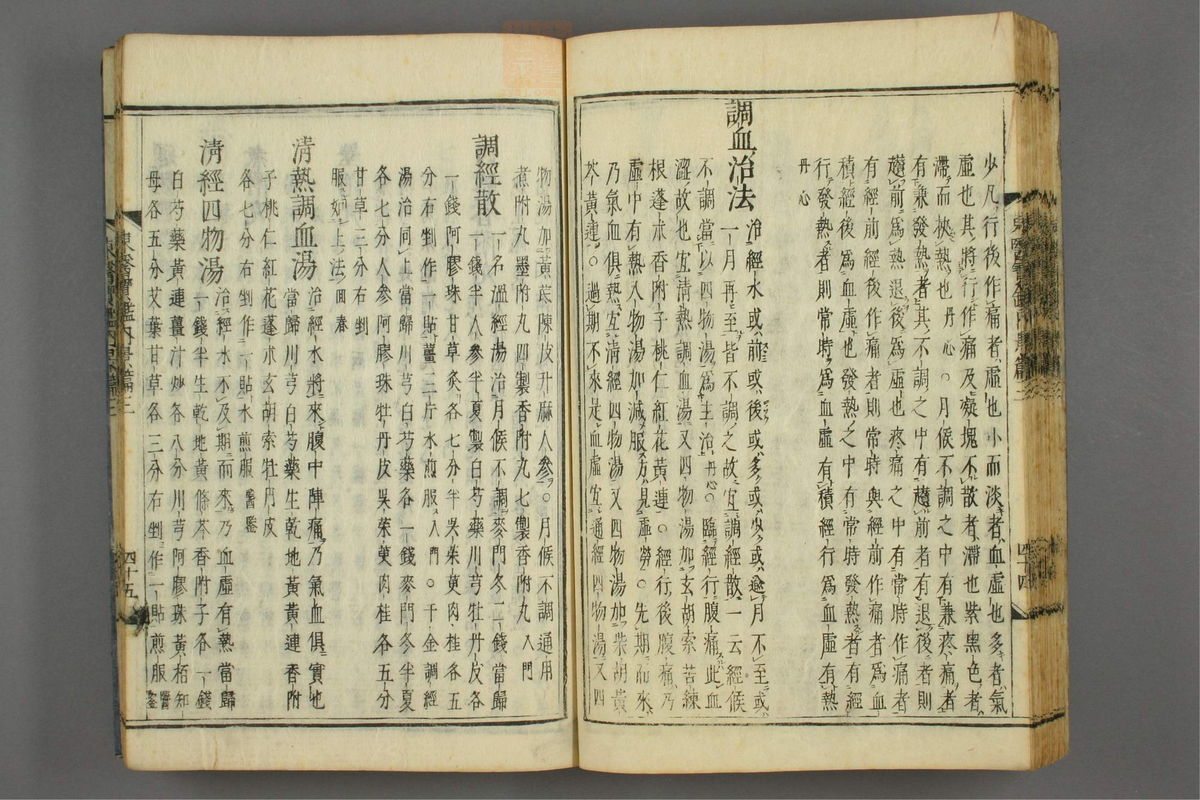 少凡行後作痛者虛也小而淡者血虛也多者氣
虛也其將行作痛及凝塊不散者滯也紫黑色者
滯而挾熱也丹心○月候不調之中有兼疼痛者
有兼發熱者其不調之中有趲前者有退後者則
趲前爲熱退後爲虛也疼痛之中有常時作痛者
有經前經後作痛者則常時與經前作痛者爲血
積經後爲血虛也發熱之中有常時發熱者有經
行發熱者則常時爲血虛有積經行爲血虛有熱
丹心
調血治法
治經水或前或後或多或少或逾月不至或
一月再至皆不調之故宜調經散一云經候
不調當以四物湯爲主治丹心○臨經行腹痛此血
澀故也宜清熱調血湯又四物湯加玄胡索苦練
根蓬朮香附子桃仁紅花黃連○經行後腹痛乃
虛中有熱八物湯加減服方見虛勞○先期而來
乃氣血俱熱宜清經四物湯又四物湯加柴胡黃
芩黃連○過期不來是血虛宜通經四物湯又四
物湯加黃芪陳皮升麻人參○月候不調通用
煮附丸墨附丸四製香附丸七製香附丸入門
調經散
一名溫經湯治月候不調麥門冬二錢當歸
一錢半人參半夏製白芍藥川芎牡丹皮各
一錢阿膠珠甘草灸各七分半吳茱萸肉桂各五
分右剉作一貼薑三片水煎服入門○千金調經
湯治同上當歸川芎白芍藥各一錢麥門冬半夏
各七分人參阿膠珠牡丹皮吳茱萸肉桂各五分
甘草二分右剉
服如上法回春
清熱調血湯
治經水將來腹中陣痛乃氣血俱實也
當歸川芎白芍藥生乾地黃黃連香附
子桃仁紅花蓬朮玄胡索牡丹皮
各七分右剉作一貼水煎服醫鑑
清經四物湯
治經水不及期而來乃血虛有熱當歸
一錢半生乾地黃條芩香附子各一錢
白芍藥黃連薑汁炒各八分川芎阿膠珠黃栢知
母各五分艾葉甘草各三分右剉作一貼煎服醫鑑
東醫寶鑑內景篇三
四十五
四十四